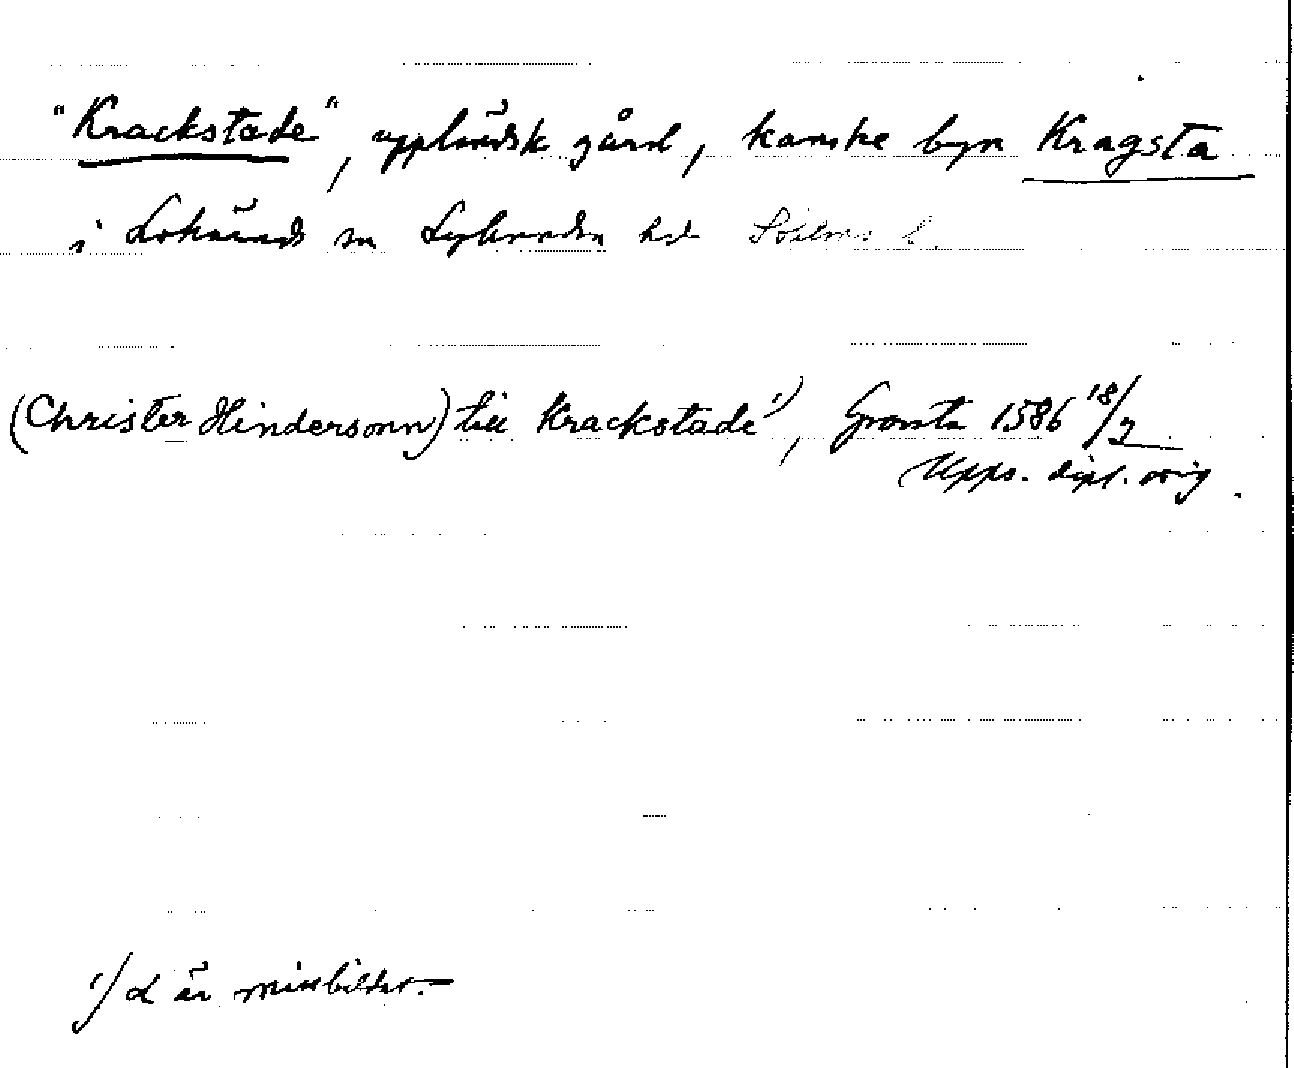 "Krackstade", uppländsk gård, kanske byn Kragsta
i Lohärads sn Lyhundra hd Sthlms l.
(Christer Hindersonn) till Krackstade ¹), Gransta 1586 18/7
Upps. dipl. orig.
¹) d är missbildat.